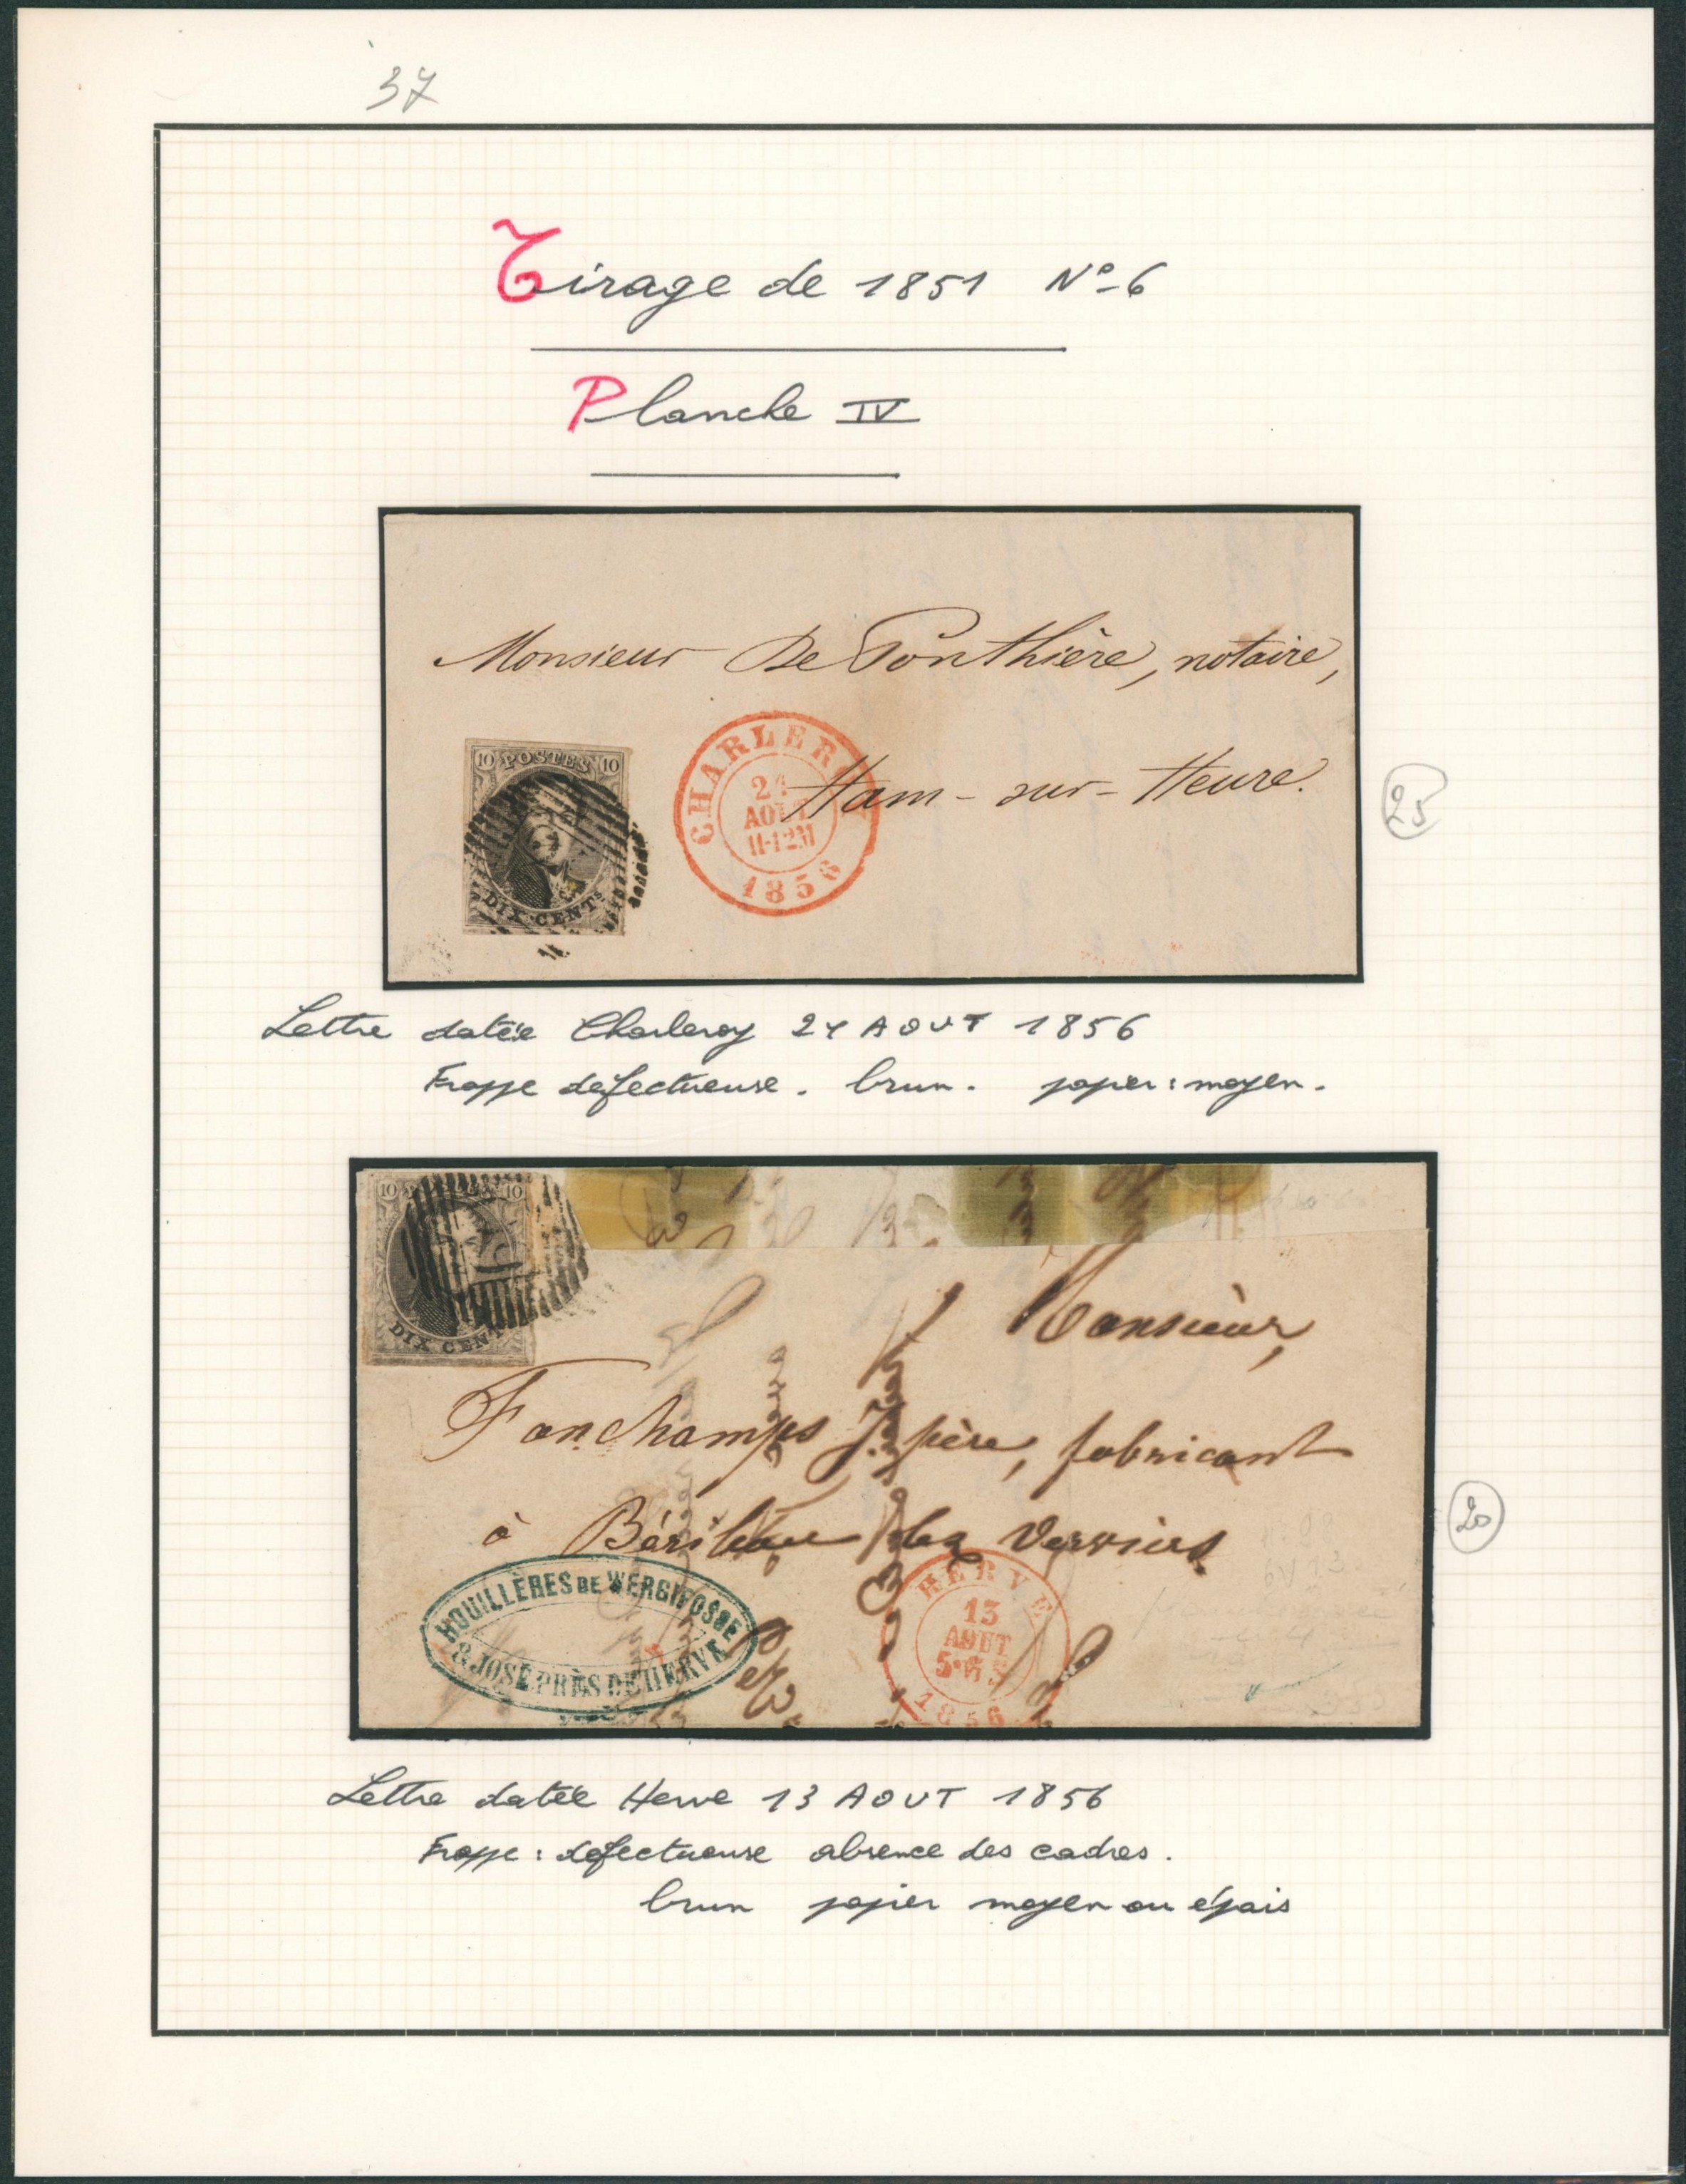 37
Tirage de 1851 Nº 6
Planche IV
Monsieur De Ponthière, notaire,
Ham-sur-Heure.
10 POSTES 10
DIX CENTS
CHARLEROY
24
AOUT
11-12M
1856
25
Lettre datée Charleroy 24 AOUT 1856
Frappe défectueuse. brun. papier: moyen.
10 10
DIX CENT
Monsieur,
Fonchamps J. père, fabricant
à Bérileau lez Verviers
HOUILLÈRES DE WERGIFOSSE
& JOSÉ PRÈS DE HERVE
HERVE
13
AOUT
1856
20
Lettre datée Herve 13 AOUT 1856
Frappe: défectueuse absence des cadres.
brun papier moyen ou épais